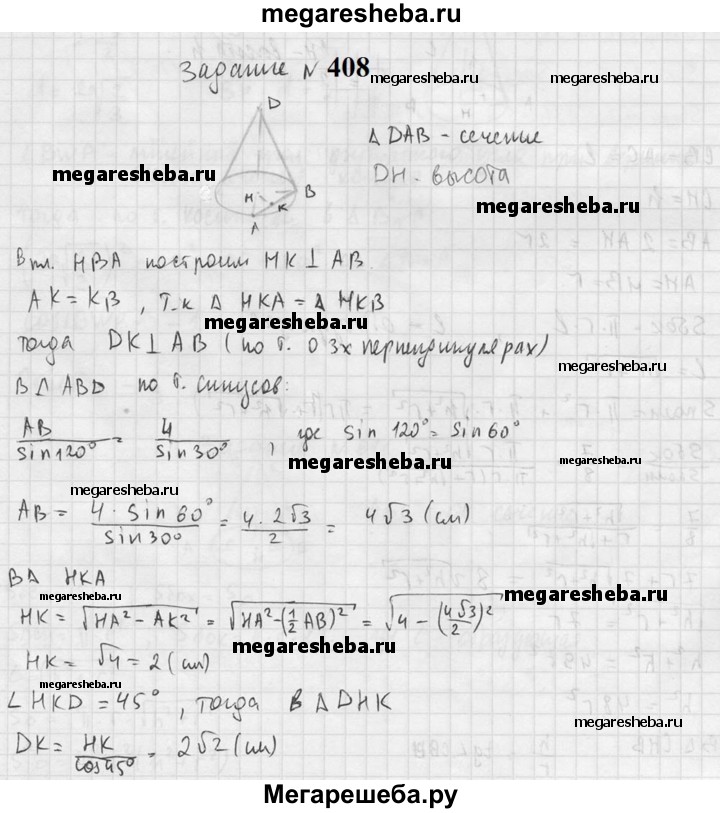 megaresheba.ru
Задание № 408
megaresheba.ru megaresheba.ru
D
Δ DAB - сечение
DH - высота
megaresheba.ru
H B
K
A
megaresheba.ru
В пл. HBA построим HK ⊥ AB.
AK = KB, т.к Δ HKA = Δ HKB
megaresheba.ru
тогда DK ⊥ AB (по т. о 3х перпендикулярах)
megaresheba.ru
В Δ ABD по т. синусов:
megaresheba.ru
AB/sin120° = 4/sin30°, где sin 120° = sin 60°
megaresheba.ru
megaresheba.ru
megaresheba.ru
AB = 4 · sin 60°/sin 30° = 4 · 2√3/2 = 4√3 (см)
megaresheba.ru
В Δ HKA
megaresheba.ru
megaresheba.ru
HK = √HA² - AK² = √HA² - (1/2 AB)² = √4 - (4√3/2)²
megaresheba.ru
HK = √4 = 2 (см)
megaresheba.ru
∠ HKD = 45°, тогда в Δ DHK
megaresheba.ru
DK = HK/cos45° = 2√2 (см)
megaresheba.ru
Мегарешеба.ру